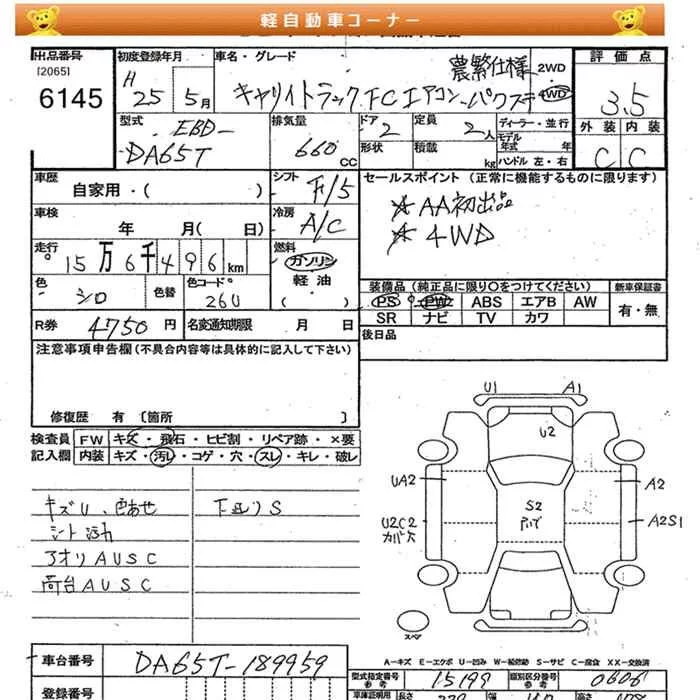 軽自動車コーナー
出品番号
[2065]
6145
初度登録年月
H 25 5月
車名・グレード
農繁仕様
キャリイトラック FC エアコン・パワステ
2WD
4WD
評価点
3.5
外装 内装
C C
型式
EBD-
DA65T
排気量
660 CC
ドア 2
形状
定員 2人
積載 kg
ディーラー・並行
モデル年式 年
ハンドル 左・右
車歴
自家用・( )
シフト F/5
車検
年 月( 日)
冷房 A/C
走行
15万6千496km
燃料
ガソリン
軽油
( )
色 シロ
色替
色コード 26U
R券 4750円
名変通知期限 月 日
セールスポイント (正常に機能するものに限ります)
☆AA初出品
☆4WD
装備品 (純正品に限り〇をつけてください)
PS PW ABS エアB AW
SR ナビ TV カワ
新車保証書
有・無
後日品
注意事項申告欄(不具合内容等は具体的に記入して下さい)
修復歴 有〔箇所 〕
検査員記入欄
FW キズ・飛石・ヒビ割・リペア跡・×要
内装 キズ・汚レ・コゲ・穴・スレ・キレ・破レ
キズU、色あせ
シート汚れ
アオリAUSC
荷台AUSC
下廻りS
U1
A1
U2
UA2
A2
S2
U2C2
A2S1
スペア
A-キズ E-エクボ U-凹み W-補修跡 S-サビ C-腐食 XX-交換済
車台番号
DA65T-189959
登録番号
型式指定番号
参考
15199
類別区分番号
参考
0606